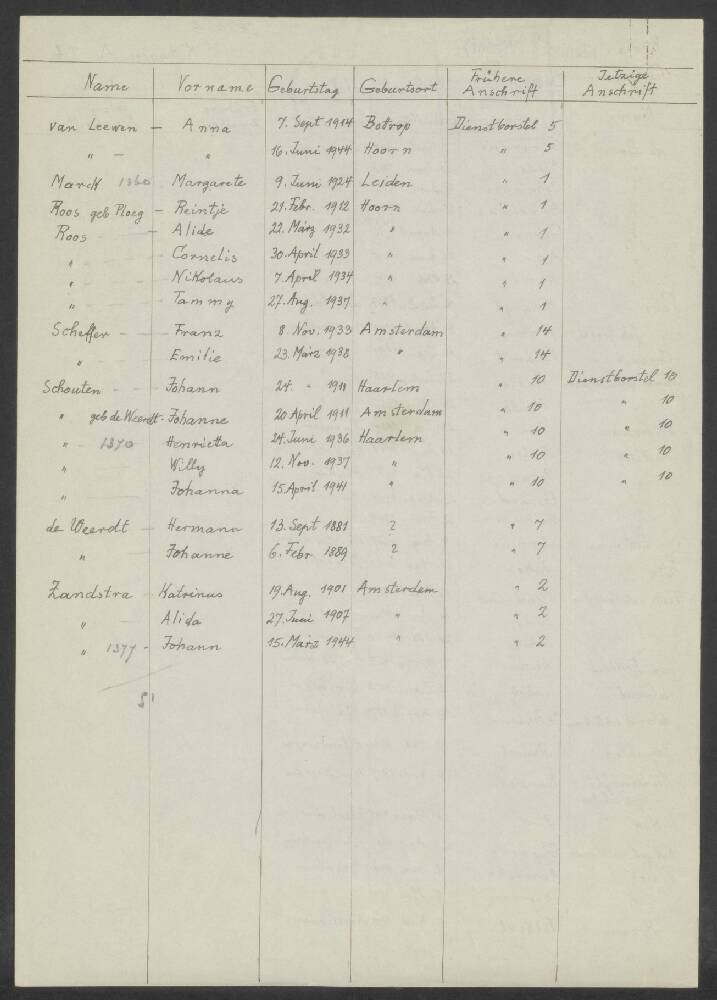 Name Vorname Geburtstag Geburtsort Frühere Anschrift Jetzige Anschrift
van Leewen - Anna 7. Sept 1914 Botrop Dienstborstel 5
" - " 16. Juni 1944 Hoorn " 5
Marck 1360 Margarete 9. Juni 1924 Leiden " 1
Roos geb Ploeg - Reintje 21. Febr. 1912 Hoorn " 1
Roos - Alide 22. März 1932 " " 1
" Cornelis 30. April 1933 " " 1
" - Nikolaus 7. April 1934 " " 1
" Tammy 27. Aug. 1937 " " 1
Scheffer - - Franz 8. Nov. 1933 Amsterdam " 14
" Emilie 23. März 1938 " " 14
Schouten - - Johann 24. " 1911 Haarlem " 10 Dienstborstel 10
" geb de Weerdt - Johanne 20 April 1911 Amsterdam " 10 " 10
" - 1370 Henrietta 24. Juni 1936 Haarlem " 10 " 10
" Willy 12. Nov. 1937 " " 10 " 10
" Johanna 15. April 1941 " " 10 " 10
de Weerdt - Hermann 13. Sept 1881 ? " 7
" Johanne 6. Febr. 1889 ? " 7
Zandstra - Katrinus 19. Aug. 1901 Amsterdam " 2
" - Alida 27. Juni 1907 " " 2
" 1377 - Johann 15. März 1944 " " 2